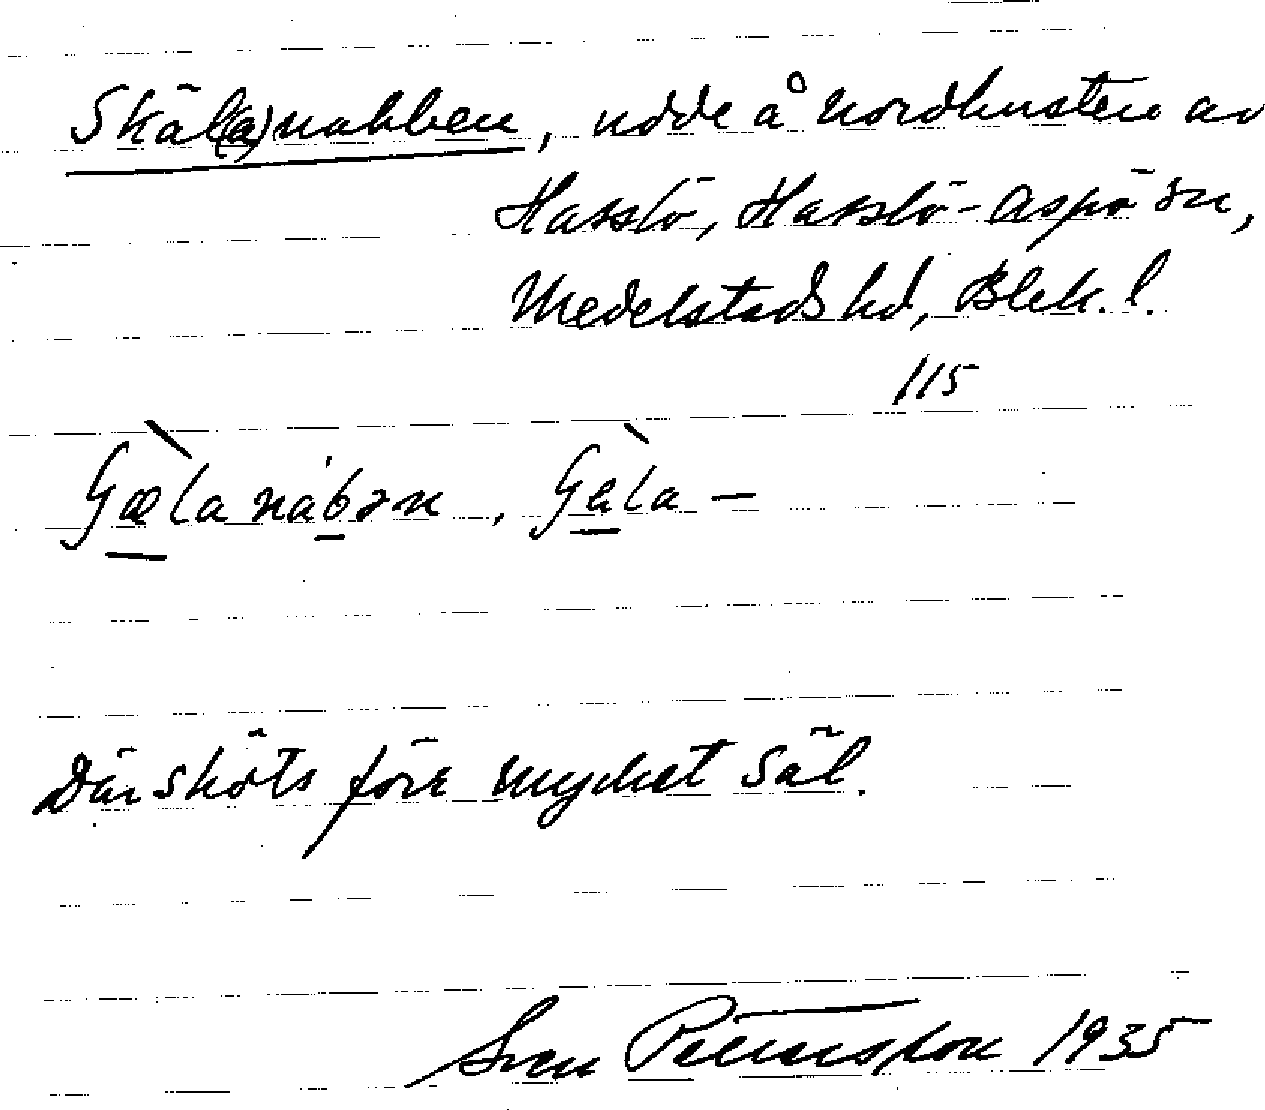 Skäl(a)nabben, udde å nordkusten av
Hasslö, Hasslö-Aspö sn,
Medelstads hd, Blek. l.
115
Där sköts förr mycket säl.
Sven Pettersson 1935